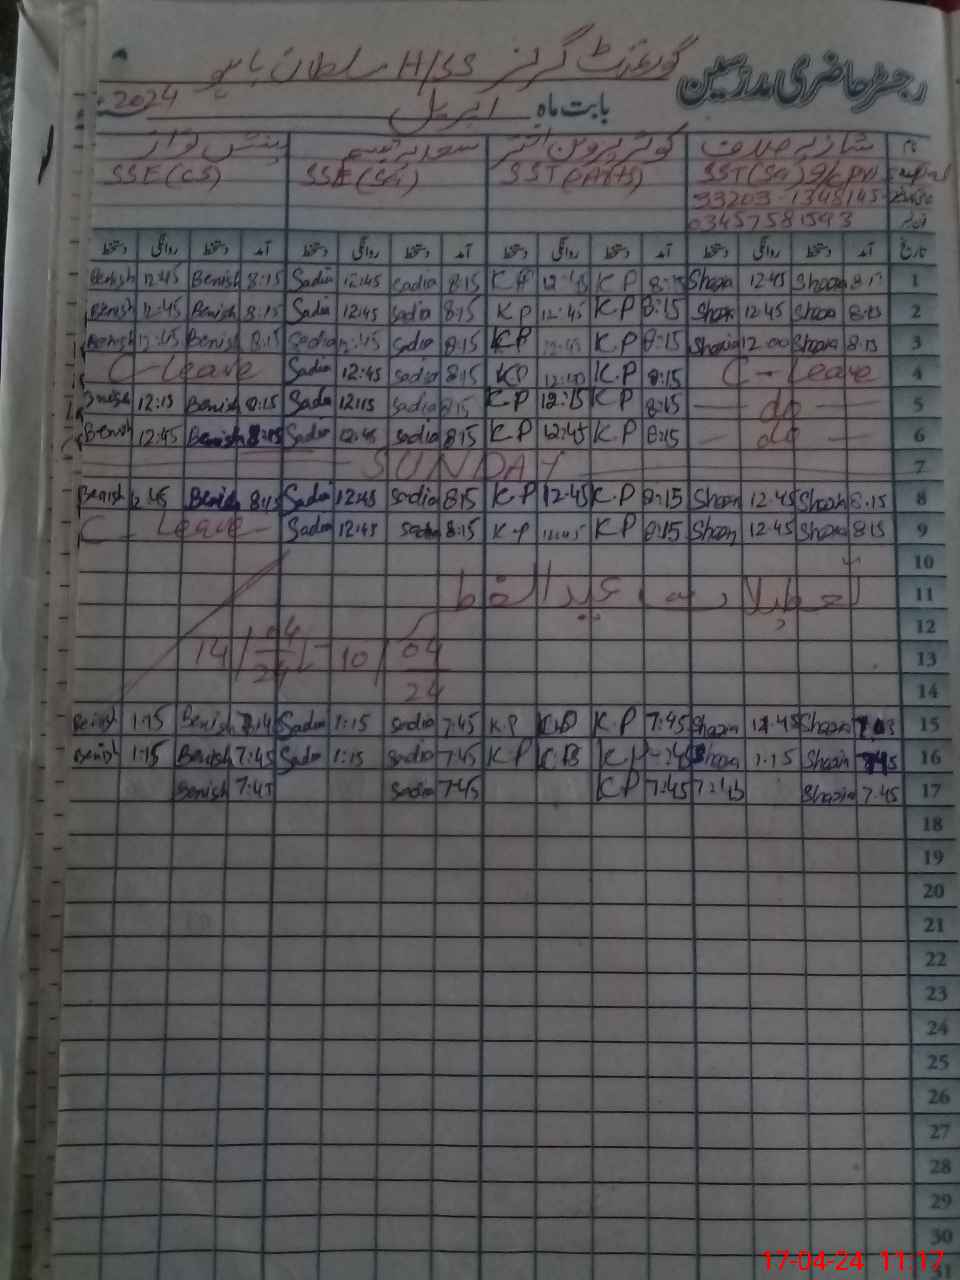 رجسٹر حاضری مدرسین
گورنمنٹ گرلز H/SS سلطان باہو
بابت ماہ اپریل 2024
نام شازیہ کوثر پروین اختر سعدیہ بینش نواز
SST(Sc) SST(Arts) SSE(Sc) SSE(CS)
33203-1348145-
03457581593
تاریخ آمد دستخط روانگی دستخط آمد دستخط روانگی دستخط آمد دستخط روانگی دستخط آمد دستخط روانگی دستخط
Benish 12:45 Benish 8:15 Sadia 12:45 Sadia 8:15 K P 12:45 K P Shazia 12:45 Shazia 8:15 1
Benish 12:45 Benish 8:15 Sadia 12:45 Sadia 8:15 K P 12:45 K P 8:15 Shazia 12:45 Shazia 8:15 2
Benish 12:45 Benish 8:15 Sadia 12:45 Sadia 8:15 KP 12:45 K.P 8:15 Shazia 12:00 Shazia 8:15 3
C-Leave Sadia 12:45 Sadia 8:15 KP K.P 8:15 C-Leave 4
Benish 12:15 Benish 8:15 Sadia 12:15 Sadia 8:15 K P 12:15 K.P 8:15 — do — 5
Benish 12:45 Benish 8:15 Sadia 12:45 Sadia 8:15 K P 12:45 K.P 8:15 — do — 6
SUNDAY 7
Benish 12:45 Benish 8:15 Sadia 12:45 Sadia 8:15 K.P 12:45 K.P 8:15 Shazia 12:45 Shazia 8:15 8
C-Leave Sadia 12:45 Sadia 8:15 K.P 12:45 K.P 8:15 Shazia 12:45 Shazia 8:15 9
10
تعطیلات عیدالفطر 11
12
14/04/24 10/04/24 13
14
Benish 1:15 Benish Sadia 1:15 Sadia 7:45 K.P K.P 7:45 Shazia Shazia 15
Benish 1:15 Benish 7:45 Sadia 1:15 Sadia 7:45 KP KP Shazia 1:15 Shazia 7:45 16
Benish 7:45 Sadia 7:45 KP 7:45 7:45 Shazia 7:45 17
18
19
20
21
22
23
24
25
26
27
28
29
30
31
17-04-24 11:17